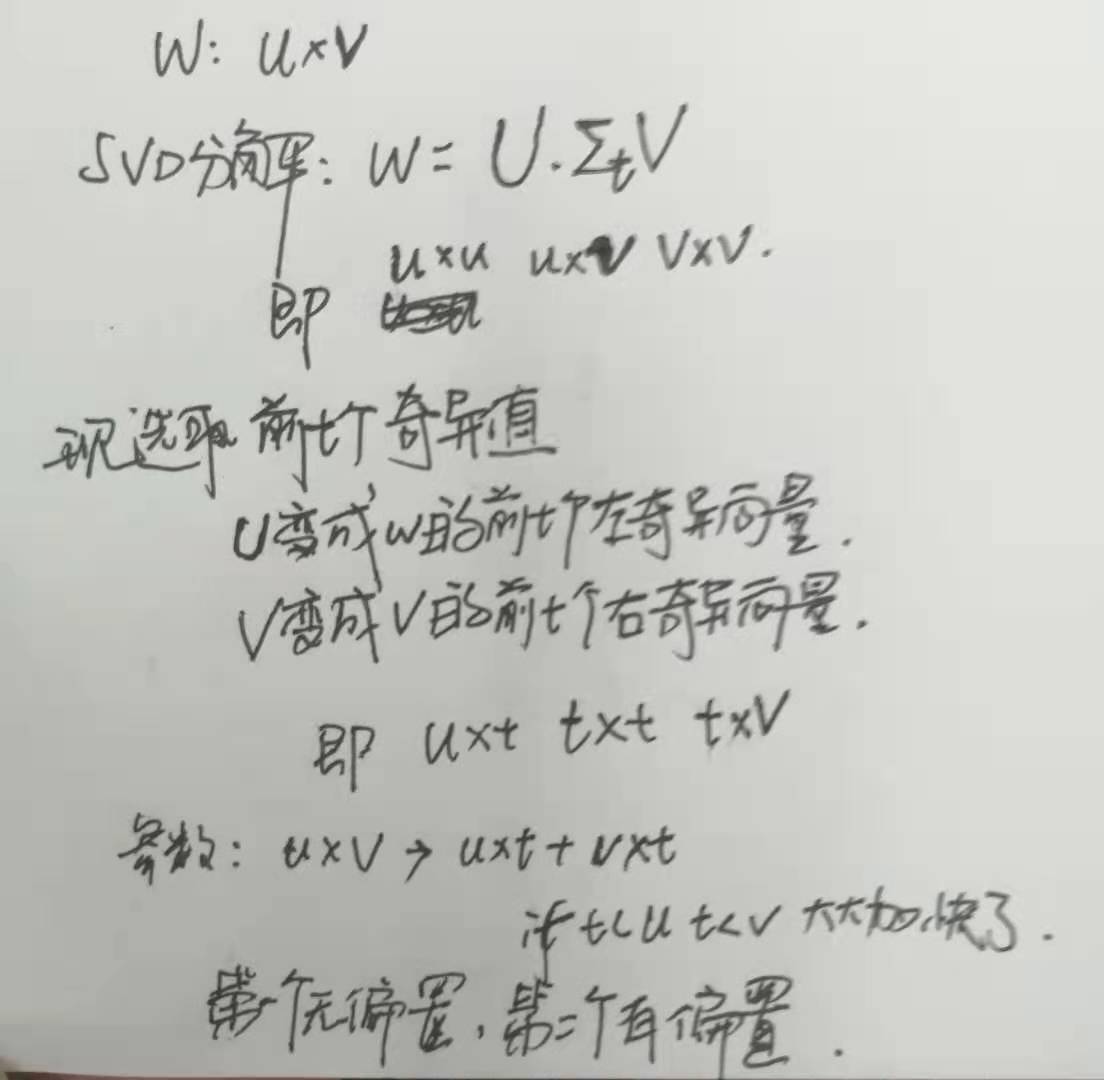 W: u×v
SVD分解: W = U·ΣₜV
u×u u×v v×v.
即
现选取前t个奇异值
U变成W的前t个左奇异向量.
V变成V的前t个右奇异向量.
即 u×t t×t t×v
参数: u×v → u×t + v×t
if t<u t<v 大大加快了.
第一个无偏置,第二个有偏置.